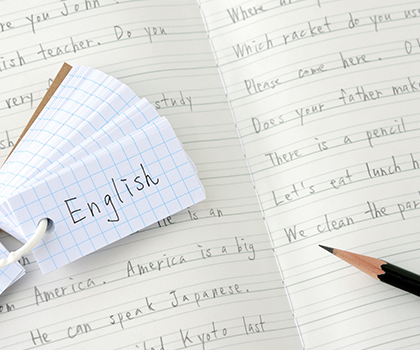 re you John
ish teacher. Do you
very
study
English
He is an
from America. America is a big
He can speak Japanese.
Kyoto last
Where
Which racket do you us
Please come here. O
Does your father mak
There is a pencil
Let's eat lunch h
We clean the par